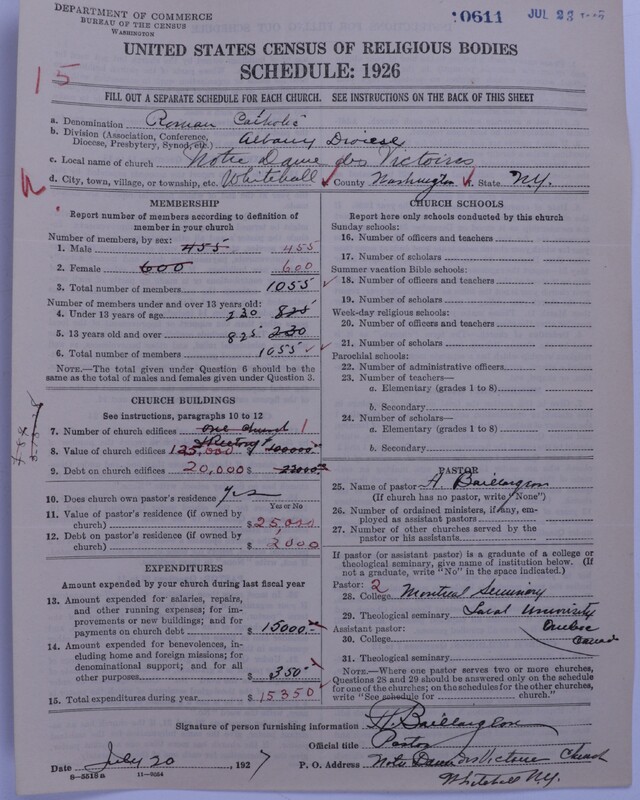 DEPARTMENT OF COMMERCE
BUREAU OF THE CENSUS
WASHINGTON
10611 JUL 23
15
UNITED STATES CENSUS OF RELIGIOUS BODIES
SCHEDULE: 1926
FILL OUT A SEPARATE SCHEDULE FOR EACH CHURCH. SEE INSTRUCTIONS ON THE BACK OF THIS SHEET
a. Denomination Roman Catholic
b. Division (Association, Conference, Diocese, Presbytery, Synod, etc.) Albany Diocese
c. Local name of church Notre Dame des Victoires
d. City, town, village, or township, etc. Whitehall County Washington State N.Y.
MEMBERSHIP
Report number of members according to definition of
member in your church
Number of members, by sex:
1. Male 455 455
2. Female 600 600
3. Total number of members 1055
Number of members under and over 13 years old:
4. Under 13 years of age 230 825
5. 13 years old and over 825 230
6. Total number of members 1055
NOTE.—The total given under Question 6 should be
the same as the total of males and females given under Question 3.
CHURCH BUILDINGS
See instructions, paragraphs 10 to 12
7. Number of church edifices one church 1
& Rectory
8. Value of church edifices 125,000 $ 100000
9. Debt on church edifices 20,000 $ 22000
10. Does church own pastor's residence yes
Yes or No
11. Value of pastor's residence (if owned by
church) $ 25,000
12. Debt on pastor's residence (if owned by
church) $ 2000
EXPENDITURES
Amount expended by your church during last fiscal year
13. Amount expended for salaries, repairs,
and other running expenses; for im-
provements or new buildings; and for
payments on church debt $ 15000
14. Amount expended for benevolences,
including home and foreign missions; for
denominational support; and for all
other purposes $ 350
15. Total expenditures during year $ 15350
CHURCH SCHOOLS
Report here only schools conducted by this church
Sunday schools:
16. Number of officers and teachers
17. Number of scholars
Summer vacation Bible schools:
18. Number of officers and teachers
19. Number of scholars
Week-day religious schools:
20. Number of officers and teachers
21. Number of scholars
Parochial schools:
22. Number of administrative officers
23. Number of teachers—
a. Elementary (grades 1 to 8)
b. Secondary
24. Number of scholars—
a. Elementary (grades 1 to 8)
b. Secondary
PASTOR
25. Name of pastor H. Baillargeon
(If church has no pastor, write "None")
26. Number of ordained ministers, if any, em-
ployed as assistant pastors
27. Number of other churches served by the
pastor or his assistants
If pastor (or assistant pastor) is a graduate of a college or
theological seminary, give name of institution below. (If
not a graduate, write "No" in the space indicated.)
Pastor: 2
28. College Montreal Seminary
29. Theological seminary Laval University
Assistant pastor: Quebec
30. College Canada
31. Theological seminary
NOTE.—Where one pastor serves two or more churches,
Questions 28 and 29 should be answered only on the schedule
for one of the churches; on the schedules for the other churches,
write "See schedule for church."
Signature of person furnishing information H. Baillargeon
Official title Pastor
Date July 20, 1927 P. O. Address Notre Dame des Victoires Church
8—5518 a 11—9554 Whitehall N.Y.